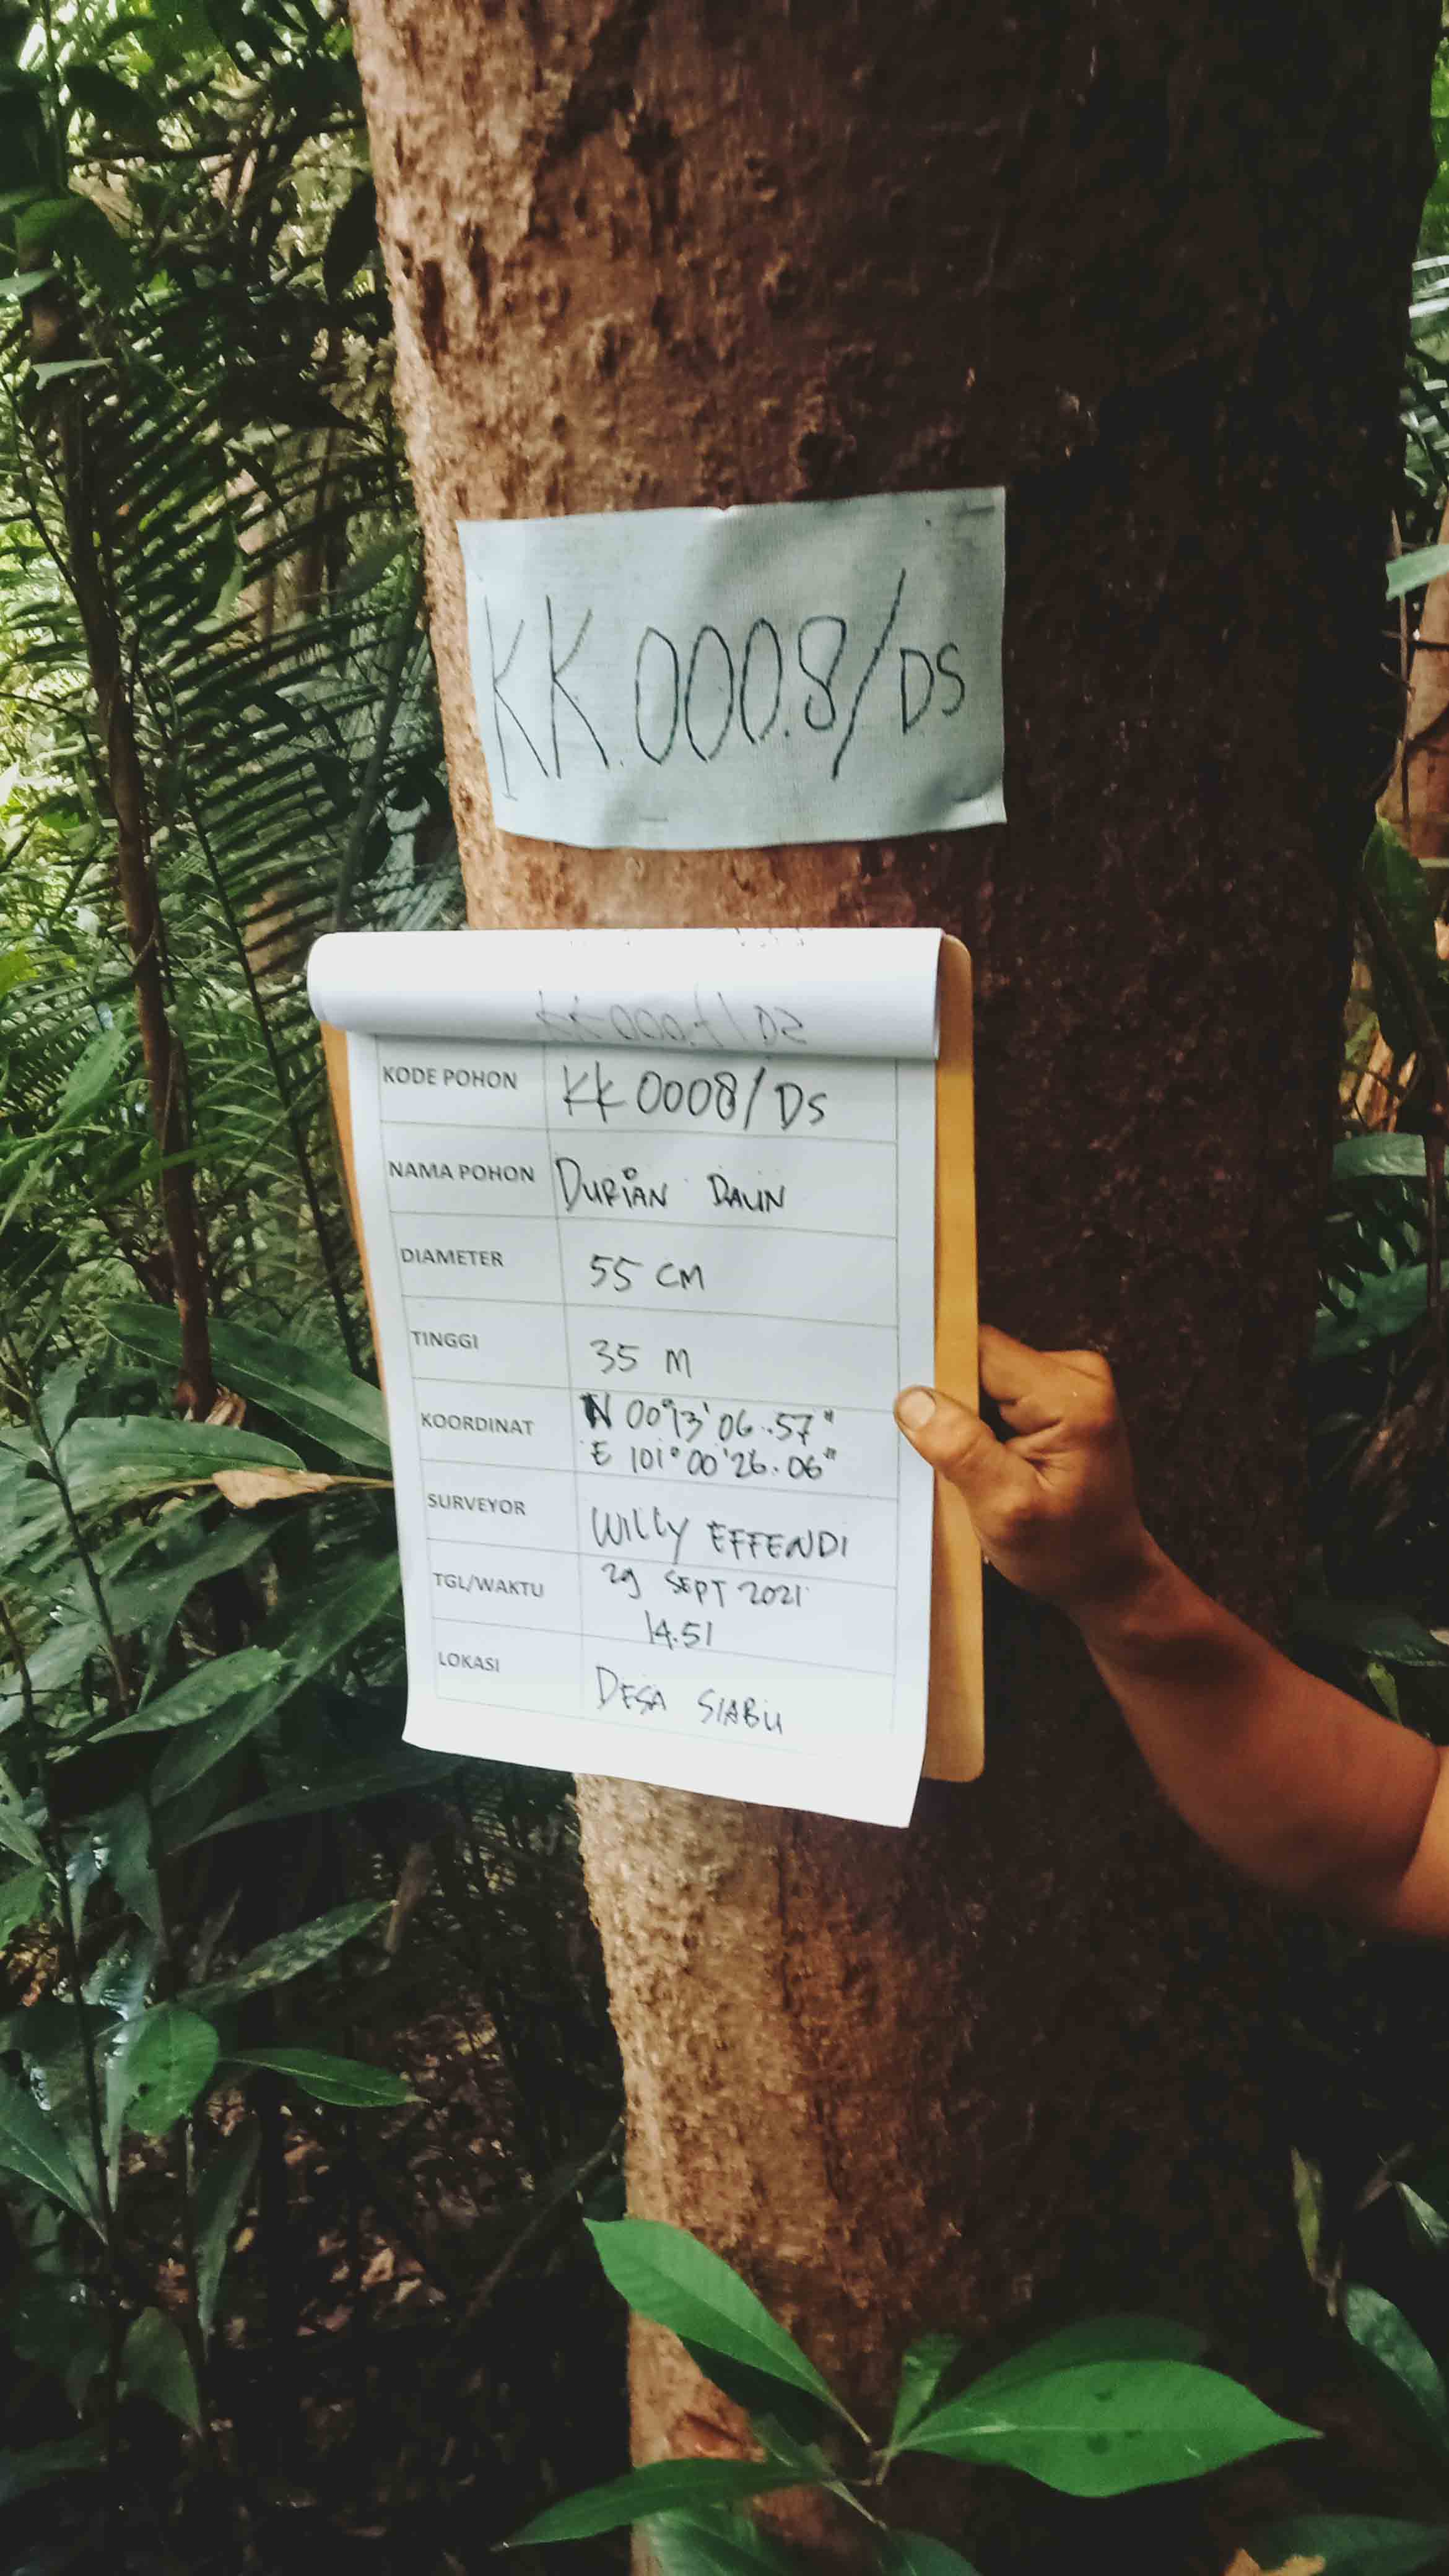 KK.000.8/DS
KODE POHON KK 0008/DS
NAMA POHON DURIAN DAUN
DIAMETER 55 CM
TINGGI 35 M
KOORDINAT N 00°13'06.57"
E 101°00'26.06"
SURVEYOR WILLY EFFENDI
TGL/WAKTU 29 SEPT 2021
14.51
LOKASI DESA SIABU